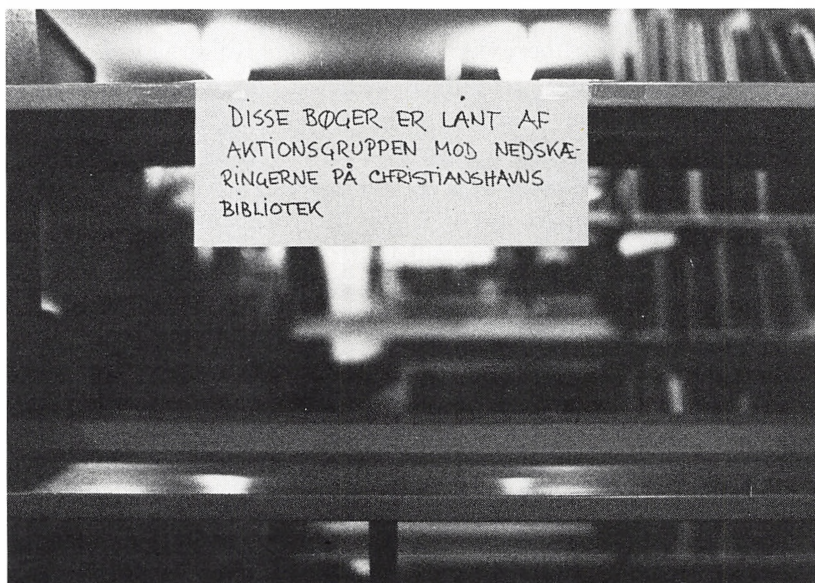 DISSE BØGER ER LÅNT AF
AKTIONSGRUPPEN MOD NEDSKÆ-
RINGERNE PÅ CHRISTIANSHAVNS
BIBLIOTEK